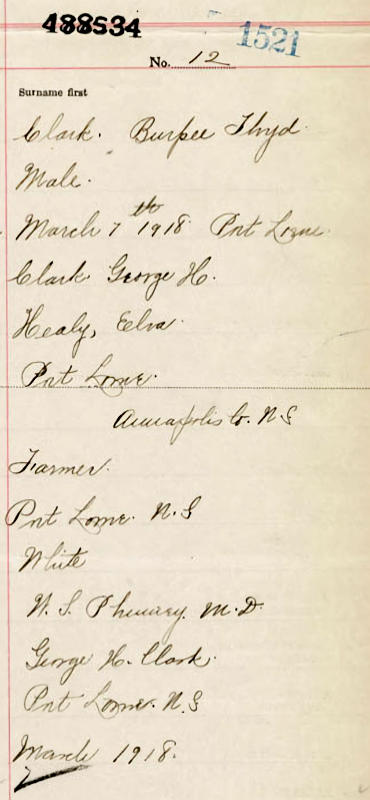 488534
1521
No. 12
Surname first
Clark. Burpee Lloyd.
Male.
March 7th 1918 Port Lorne.
Clark George H.
Healy, Elva.
Port Lorne.
Annapolis Co. N S
Farmer.
Port Lorne. N.S
White
M.D.
George H. Clark.
Port Lorne. N.S
March 1918.
7